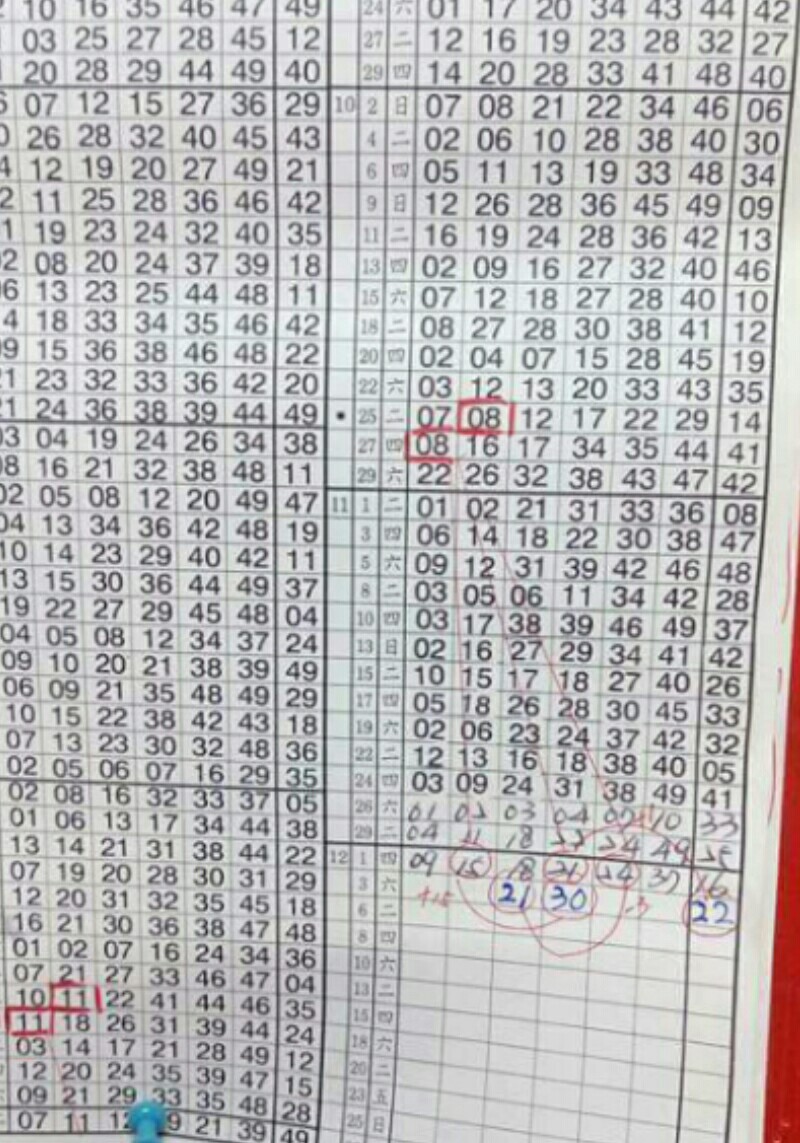 10 16 35 46 47 49
03 25 27 28 45 12
20 28 29 44 49 40
07 12 15 27 36 29
26 28 32 40 45 43
12 19 20 27 49 21
11 25 28 36 46 42
19 23 24 32 40 35
08 20 24 37 39 18
13 23 25 44 48 11
18 33 34 35 46 42
15 36 38 46 48 22
23 32 33 36 42 20
24 36 38 39 44 49
03 04 19 24 26 34 38
08 16 21 32 38 48 11
02 05 08 12 20 49 47
04 13 34 36 42 48 19
10 14 23 29 40 42 11
13 15 30 36 44 49 37
19 22 27 29 45 48 04
04 05 08 12 34 37 24
09 10 20 21 38 39 49
06 09 21 35 48 49 29
10 15 22 38 42 43 18
07 13 23 30 32 48 36
02 05 06 07 16 29 35
02 08 16 32 33 37 05
01 06 13 17 34 44 38
13 14 21 31 38 44 22
07 19 20 28 30 31 29
12 20 31 32 35 45 18
16 21 30 36 38 47 48
01 02 07 16 24 34 36
07 21 27 33 46 47 04
10 11 22 41 44 46 35
11 18 26 31 39 44 24
03 14 17 21 28 49 12
12 20 24 35 39 47 15
09 21 29 33 35 48 28
07 11 21 39 49
24 六 01 17 20 34 43 44 42
27 二 12 16 19 23 28 32 27
29 四 14 20 28 33 41 48 40
10 2 日 07 08 21 22 34 46 06
4 二 02 06 10 28 38 40 30
6 四 05 11 13 19 33 48 34
9 日 12 26 28 36 45 49 09
11 二 16 19 24 28 36 42 13
13 四 02 09 16 27 32 40 46
15 六 07 12 18 27 28 40 10
18 二 08 27 28 30 38 41 12
20 四 02 04 07 15 28 45 19
22 六 03 12 13 20 33 43 35
25 二 07 08 12 17 22 29 14
27 四 08 16 17 34 35 44 41
29 六 22 26 32 38 43 47 42
11 1 二 01 02 21 31 33 36 08
3 四 06 14 18 22 30 38 47
5 六 09 12 31 39 42 46 48
8 二 03 05 06 11 34 42 28
10 四 03 17 38 39 46 49 37
13 日 02 16 27 29 34 41 42
15 二 10 15 17 18 27 40 26
17 四 05 18 26 28 30 45 33
19 六 02 06 23 24 37 42 32
22 二 12 13 16 18 38 40 05
24 四 03 09 24 31 38 49 41
26 六 01 03 04 10 33
29 二 04 11 18 49
12 1 四 09 15 18 21 37 16
3 六 21 30 -3 22
6 二
8 四
10 六
13 二
15 四
18 六
20 二
23 五
25 日